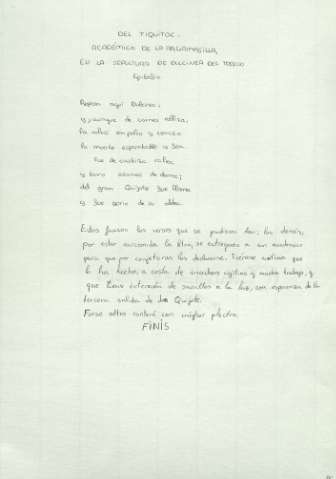 DEL TIQUITOC,
ACADÉMICO DE LA ARGAMASILLA,
EN LA SEPULTURA DE DULCINEA DEL TOBOSO
Epitafio
Reposa aquí Dulcinea;
y, aunque de carnes rolliza,
la volvió en polvo y ceniza
la muerte espantable y fea.
Fue de castiza ralea,
y tuvo asomos de dama;
del gran Quijote fue llama
y fue gloria de su aldea.
Estos fueron los versos que se pudieron leer; los demás,
por estar carcomida la letra, se entregaron a un académico
para que por conjeturas los declarase. Tiénese noticia que
lo ha hecho, a costa de muchas vigilias y mucho trabajo, y
que tiene intención de sacallos a la luz, con esperanza de la
tercera salida de don Quijote.
Forse altro canterà con miglior plectro.
FINIS